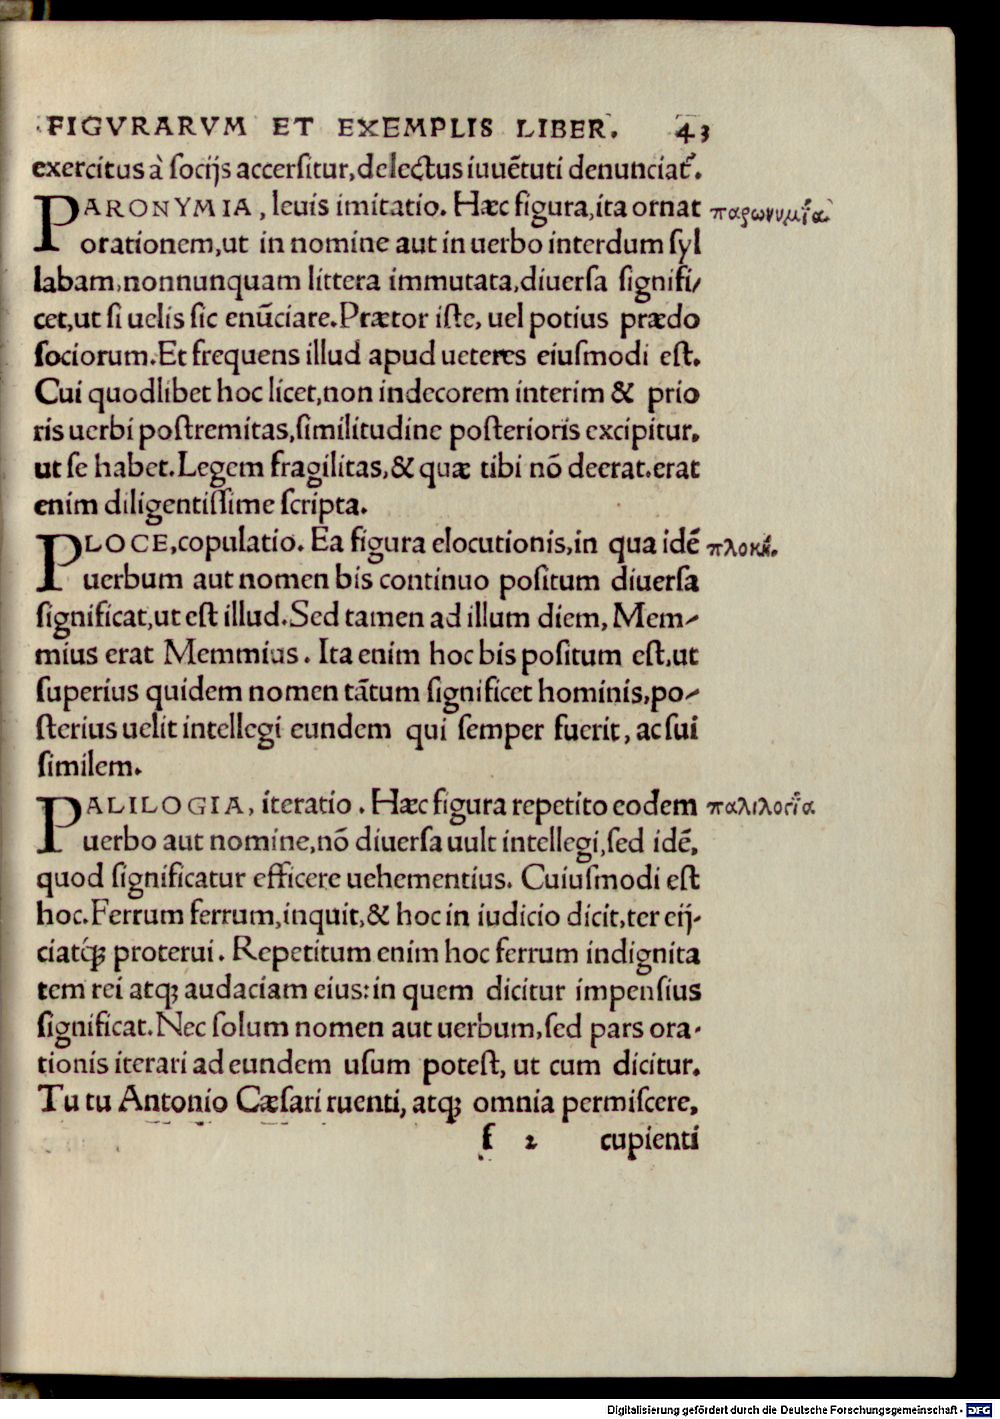 FIGVRARVM ET EXEMPLIS LIBER. 43
exercitus à ſocijs accerſitur, delectus iuuẽtuti denunciat᷑.
PARONYMIA, leuis imitatio. Hæc figura, ita ornat παρωνυμία
orationem, ut in nomine aut in uerbo interdum ſyl
labam, nonnunquam littera immutata, diuerſa signifi/
cet, ut ſi uelis ſic enũciare. Prætor iſte, uel potius prædo
ſociorum. Et frequens illud apud ueteres eiuſmodi eſt.
Cui quodlibet hoc licet, non indecorem interim & prio
ris uerbi poſtremitas, ſimilitudine poſterioris excipitur,
ut ſe habet. Legem fragilitas, & quæ tibi nõ deerat. erat
enim diligentiſſime ſcripta.
PLOCE, copulatio. Ea figura elocutionis, in qua idẽ πλοκή.
uerbum aut nomen bis continuo poſitum diuerſa
ſignificat, ut eſt illud. Sed tamen ad illum diem, Mem-
mius erat Memmius. Ita enim hoc bis poſitum eſt, ut
ſuperius quidem nomen tãtum ſignificet hominis, po-
ſterius uelit intellegi eundem qui ſemper fuerit, ac ſui
ſimilem.
PALILOGIA, iteratio. Hæc figura repetito eodem παλιλογία
uerbo aut nomine, nõ diuerſa uult intellegi, ſed idẽ,
quod ſignificatur efficere uehementius. Cuiuſmodi eſt
hoc. Ferrum ferrum, inquit, & hoc in iudicio dicit, ter eij-
ciatq́ꝫ proterui. Repetitum enim hoc ferrum indignita
tem rei atqꝫ audaciam eius: in quem dicitur impenſius
ſignificat. Nec ſolum nomen aut uerbum, ſed pars ora-
tionis iterari ad eundem uſum poteſt, ut cum dicitur.
Tu tu Antonio Cæſari ruenti, atqꝫ omnia permiſcere,
f 2 cupienti
Digitalisierung gefördert durch die Deutsche Forschungsgemeinschaft - DFG